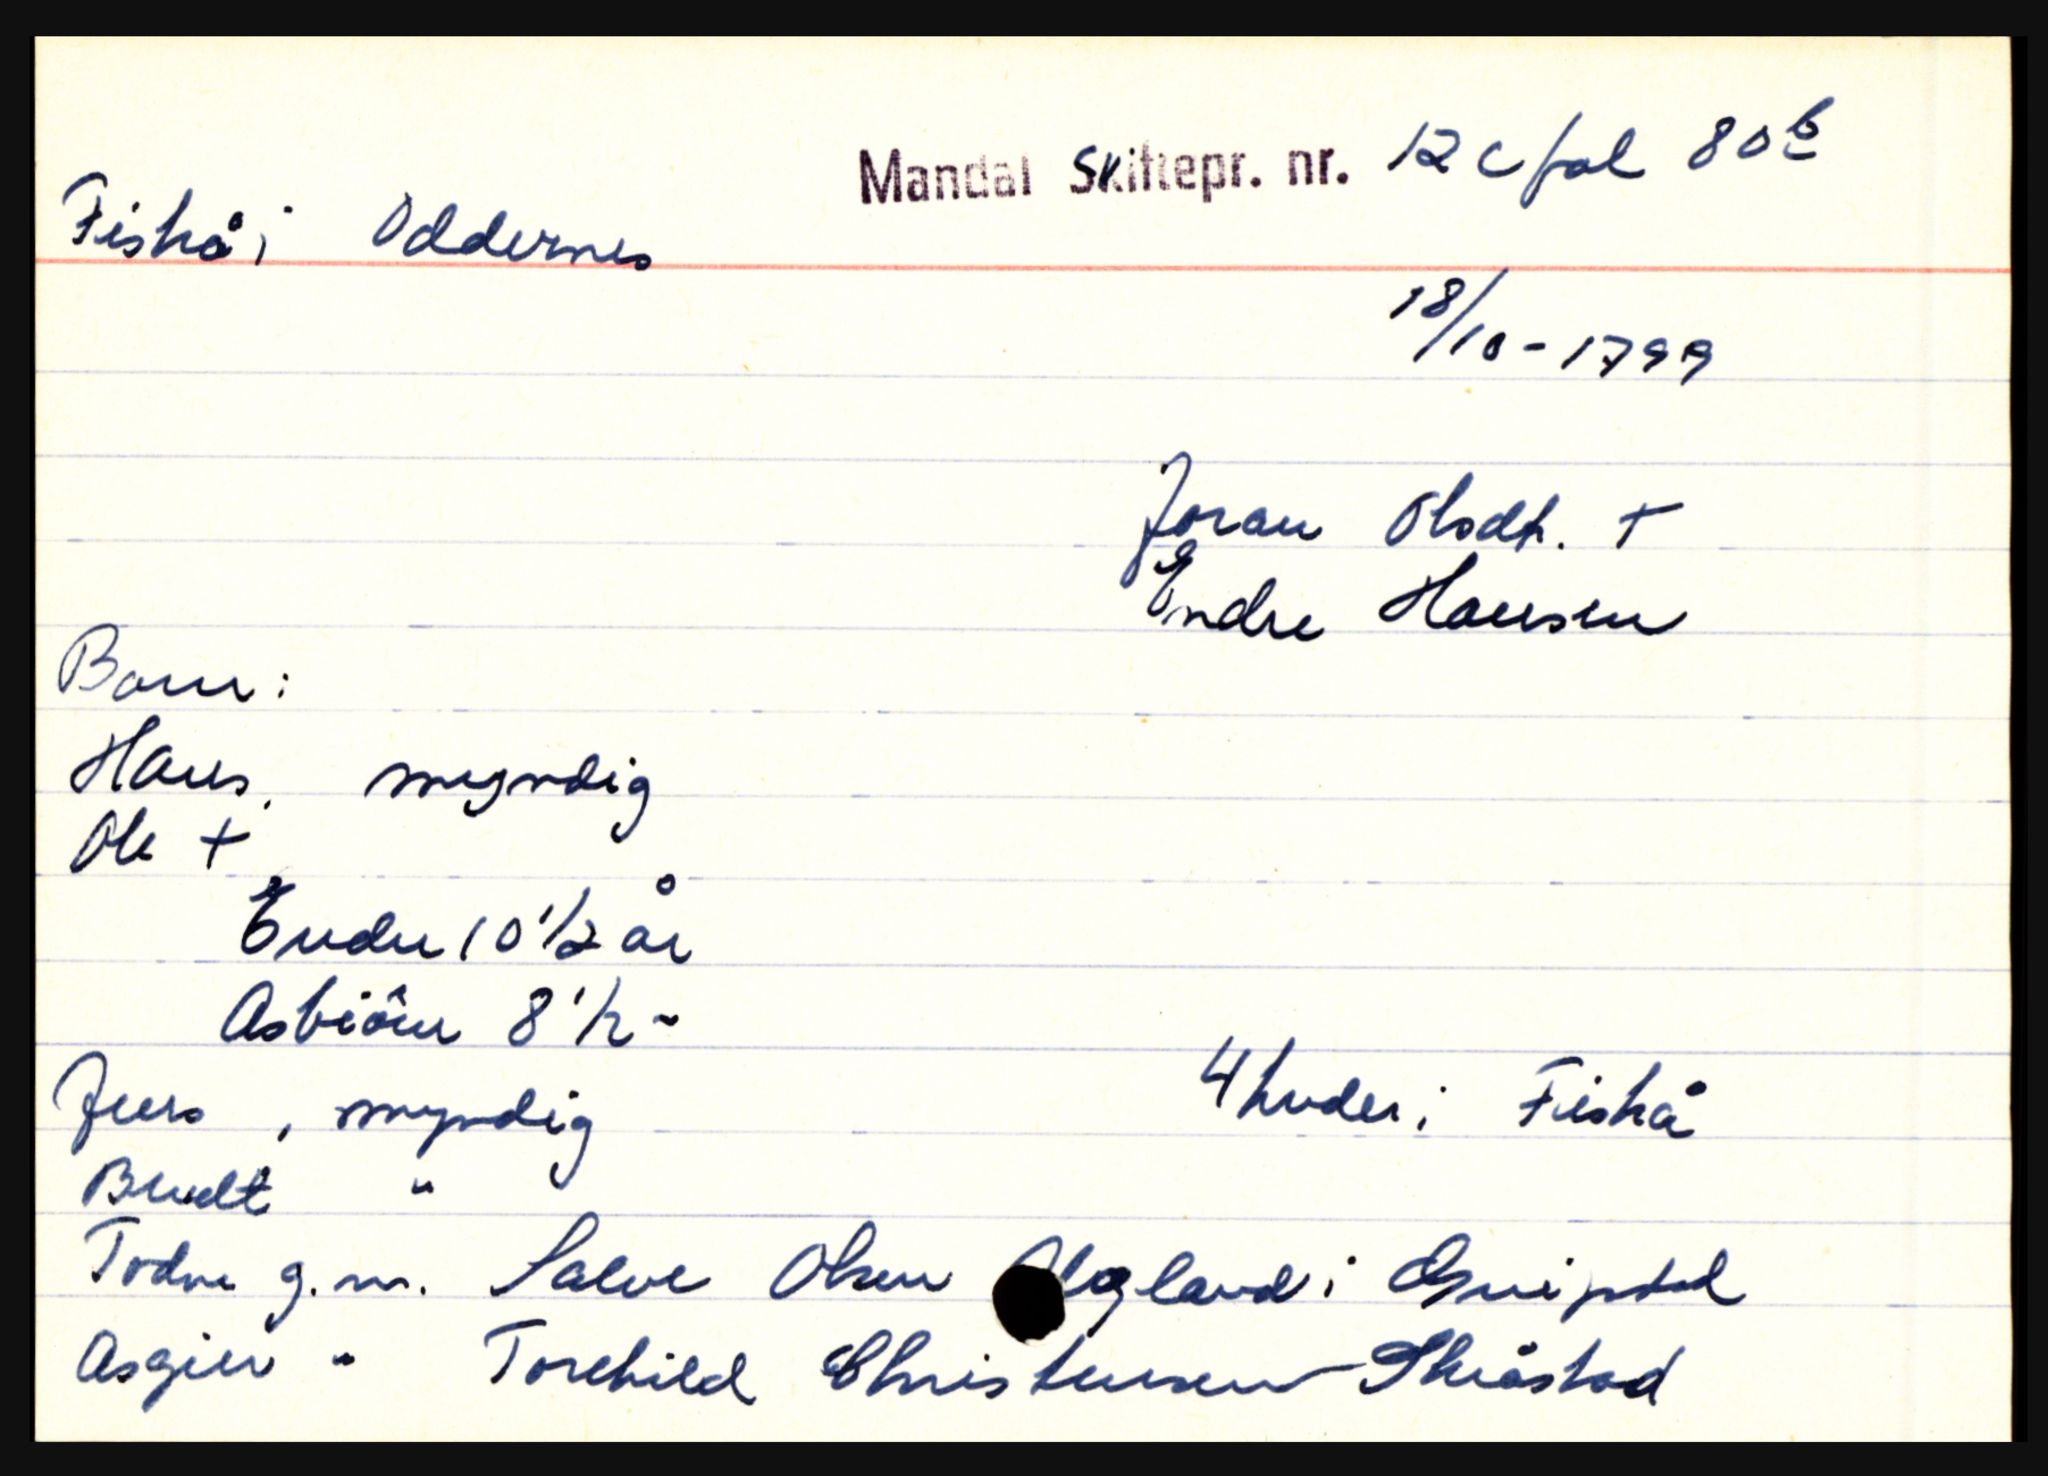 Mandal Skiftepr. nr. 12 c fol 80 b
Fiskå i Oddernes
18/10-1799
Joran Olsdt. +
Endre Hansen
Barn:
Hans, myndig
Ole +
Endre 10 1/2 år
Asbiörn 8 1/2 "
Jens, myndig
4 huder i Fiskå
Bendt "
Todne g.m. Salve Olsen i
Asgier " Torchild Christensen